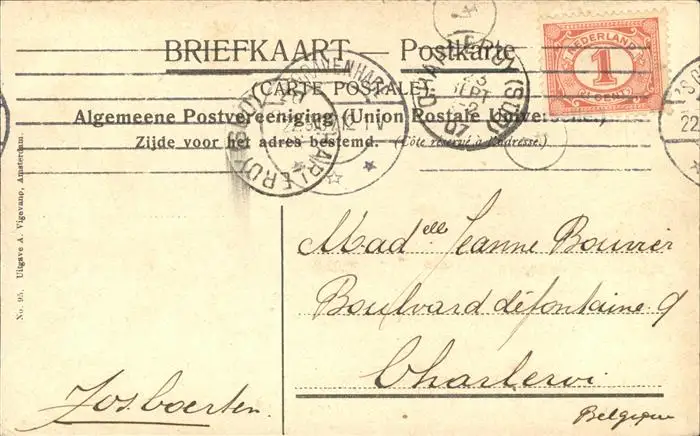 BRIEFKAART — Postkarte
(CARTE POSTALE)
Algemeene Postvereeniging (Union Postale Universelle.)
Zijde voor het adres bestemd. (Côté réservé à l'adresse.)
NEDERLAND
1
CENT
'S GRAVENHAGE
CHARLEROY (SUD)
23
SEPT
07
CHARLEROY (SUD)
No. 95. Uitgave A. Vigevano, Amsterdam.
Madelle Jeanne Bouvier
Boulvard défontaine 9
Charleroi
Belgique
Jos. Coerten.